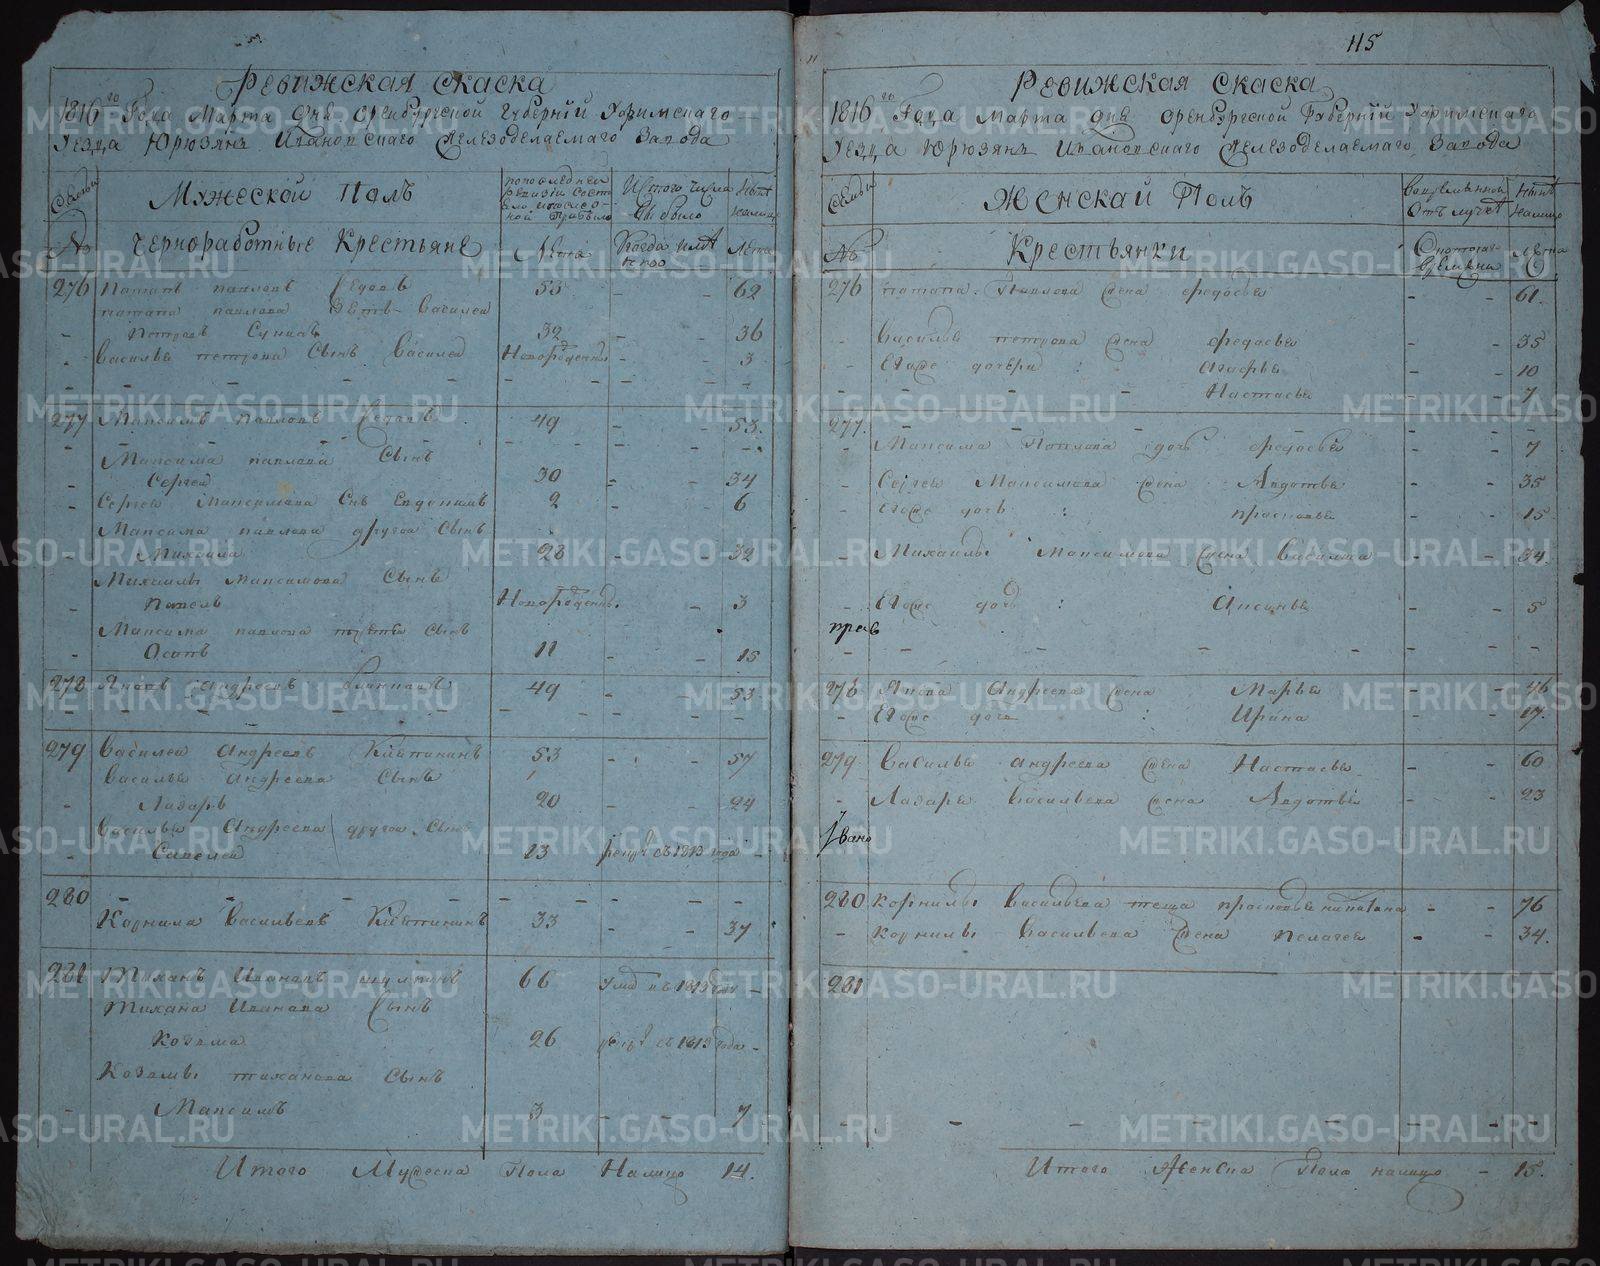 Ревижская скаска
1816го Года Марта дня Оренбургской Губерніи Уфимскаго
Уезда Юрюзянь Ивановскаго Железоделаемаго Завода
Семьи
Мужеской Полъ
Изтого числа выбыло
Лета налицо
№
Чернорабочные Крестьяне
Лета
Когда имянно
Лета
276 Потапъ павловъ Федовъ 53 - - 62
потапа павлова Зеть Василей
- Петровъ Сунцовъ 32 - - 36
- Василья петрова Сынъ Василей Новорожденны - - 3
277 Максимъ павловъ 49 - - 53.
Максима павлова Сынъ
- Сергей 30 - - 34
- Сергея Максимова Снъ Евдокимъ 2 - - 6
Максима павлова другой Сынъ
- Михайла 28 - - 32
Михайлы Максимова Сынъ
- Павелъ Новорожденны. - 3
Максима павлова третей Сынъ
- Осипъ 11 - - 15
278 Яковъ Андреевъ 49 - - 53
279 Василей Андреевъ 53 - - 57
Василья Андреева Сынъ
- Лазарь 20 - - 24
Василья Андреева другой Сынъ
- Савелей 13 рекру въ 1813 года -
280 Корнила Васильевъ 33 - - 37
281 Тиханъ Ивановъ 66 умре въ 1813 году -
Тихана Иванова Сынъ
Козьма 26 рекру въ 1813 года -
Козьмы тиханова Сынъ
- Максимъ 3 - - 7
Итого Мужеска Пола Налицо 14.
115
Ревижская скаска
1816го Года Марта дня Оренбургской Губерніи Уфимскаго
Уезда Юрюзянь Ивановскаго Железоделаемаго Завода
Семьи
Женскай Полъ
Вовременной отлучке
Лета налицо
№
Крестьянки
Скотораго времени
Лета
276 потапа Павлова жена федосья - - 61.
- Василья петрова жена федосья - - 35
- Егоже дочери : Агафья - - 10
- - Настасья - - 7
277. Максима Павлова дочь федосья - - 7
- Сергея Максимова жена Авдотья - - 35
- Егоже дочь : прасковья - - 15
- Михайлы Максимова жена Василиса - - 34.
- Егоже дочь : Аксинья - - 5
прав
278 Якова Андреева жена Марья - - 46
- Егоже дочь : Ирина - - 17.
279 Василья андреева жена Настасья - - 60
- Лазаря Васильева жена Авдотья - - 23
280 Корнилы Васильева теща прасковья - - 76
- Корнилы Васильева жена пелагея - - 34.
281
Итого Женска Пола налицо - 15.
METRIKI.GASO-URAL.RU